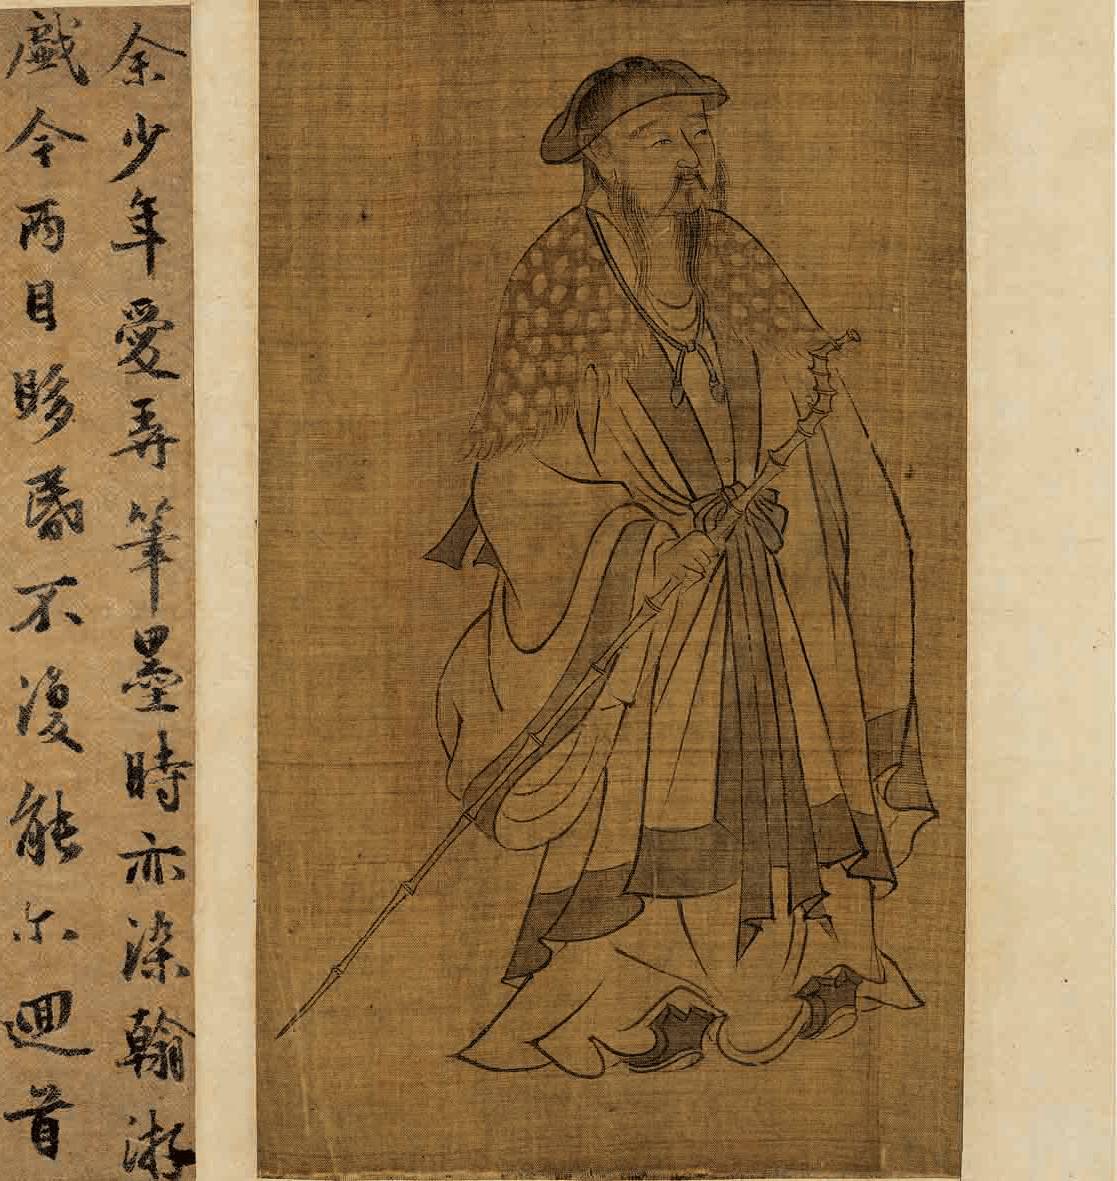 余少年愛弄筆墨時亦染翰游
戲今兩目眵昏不復能尒迴首